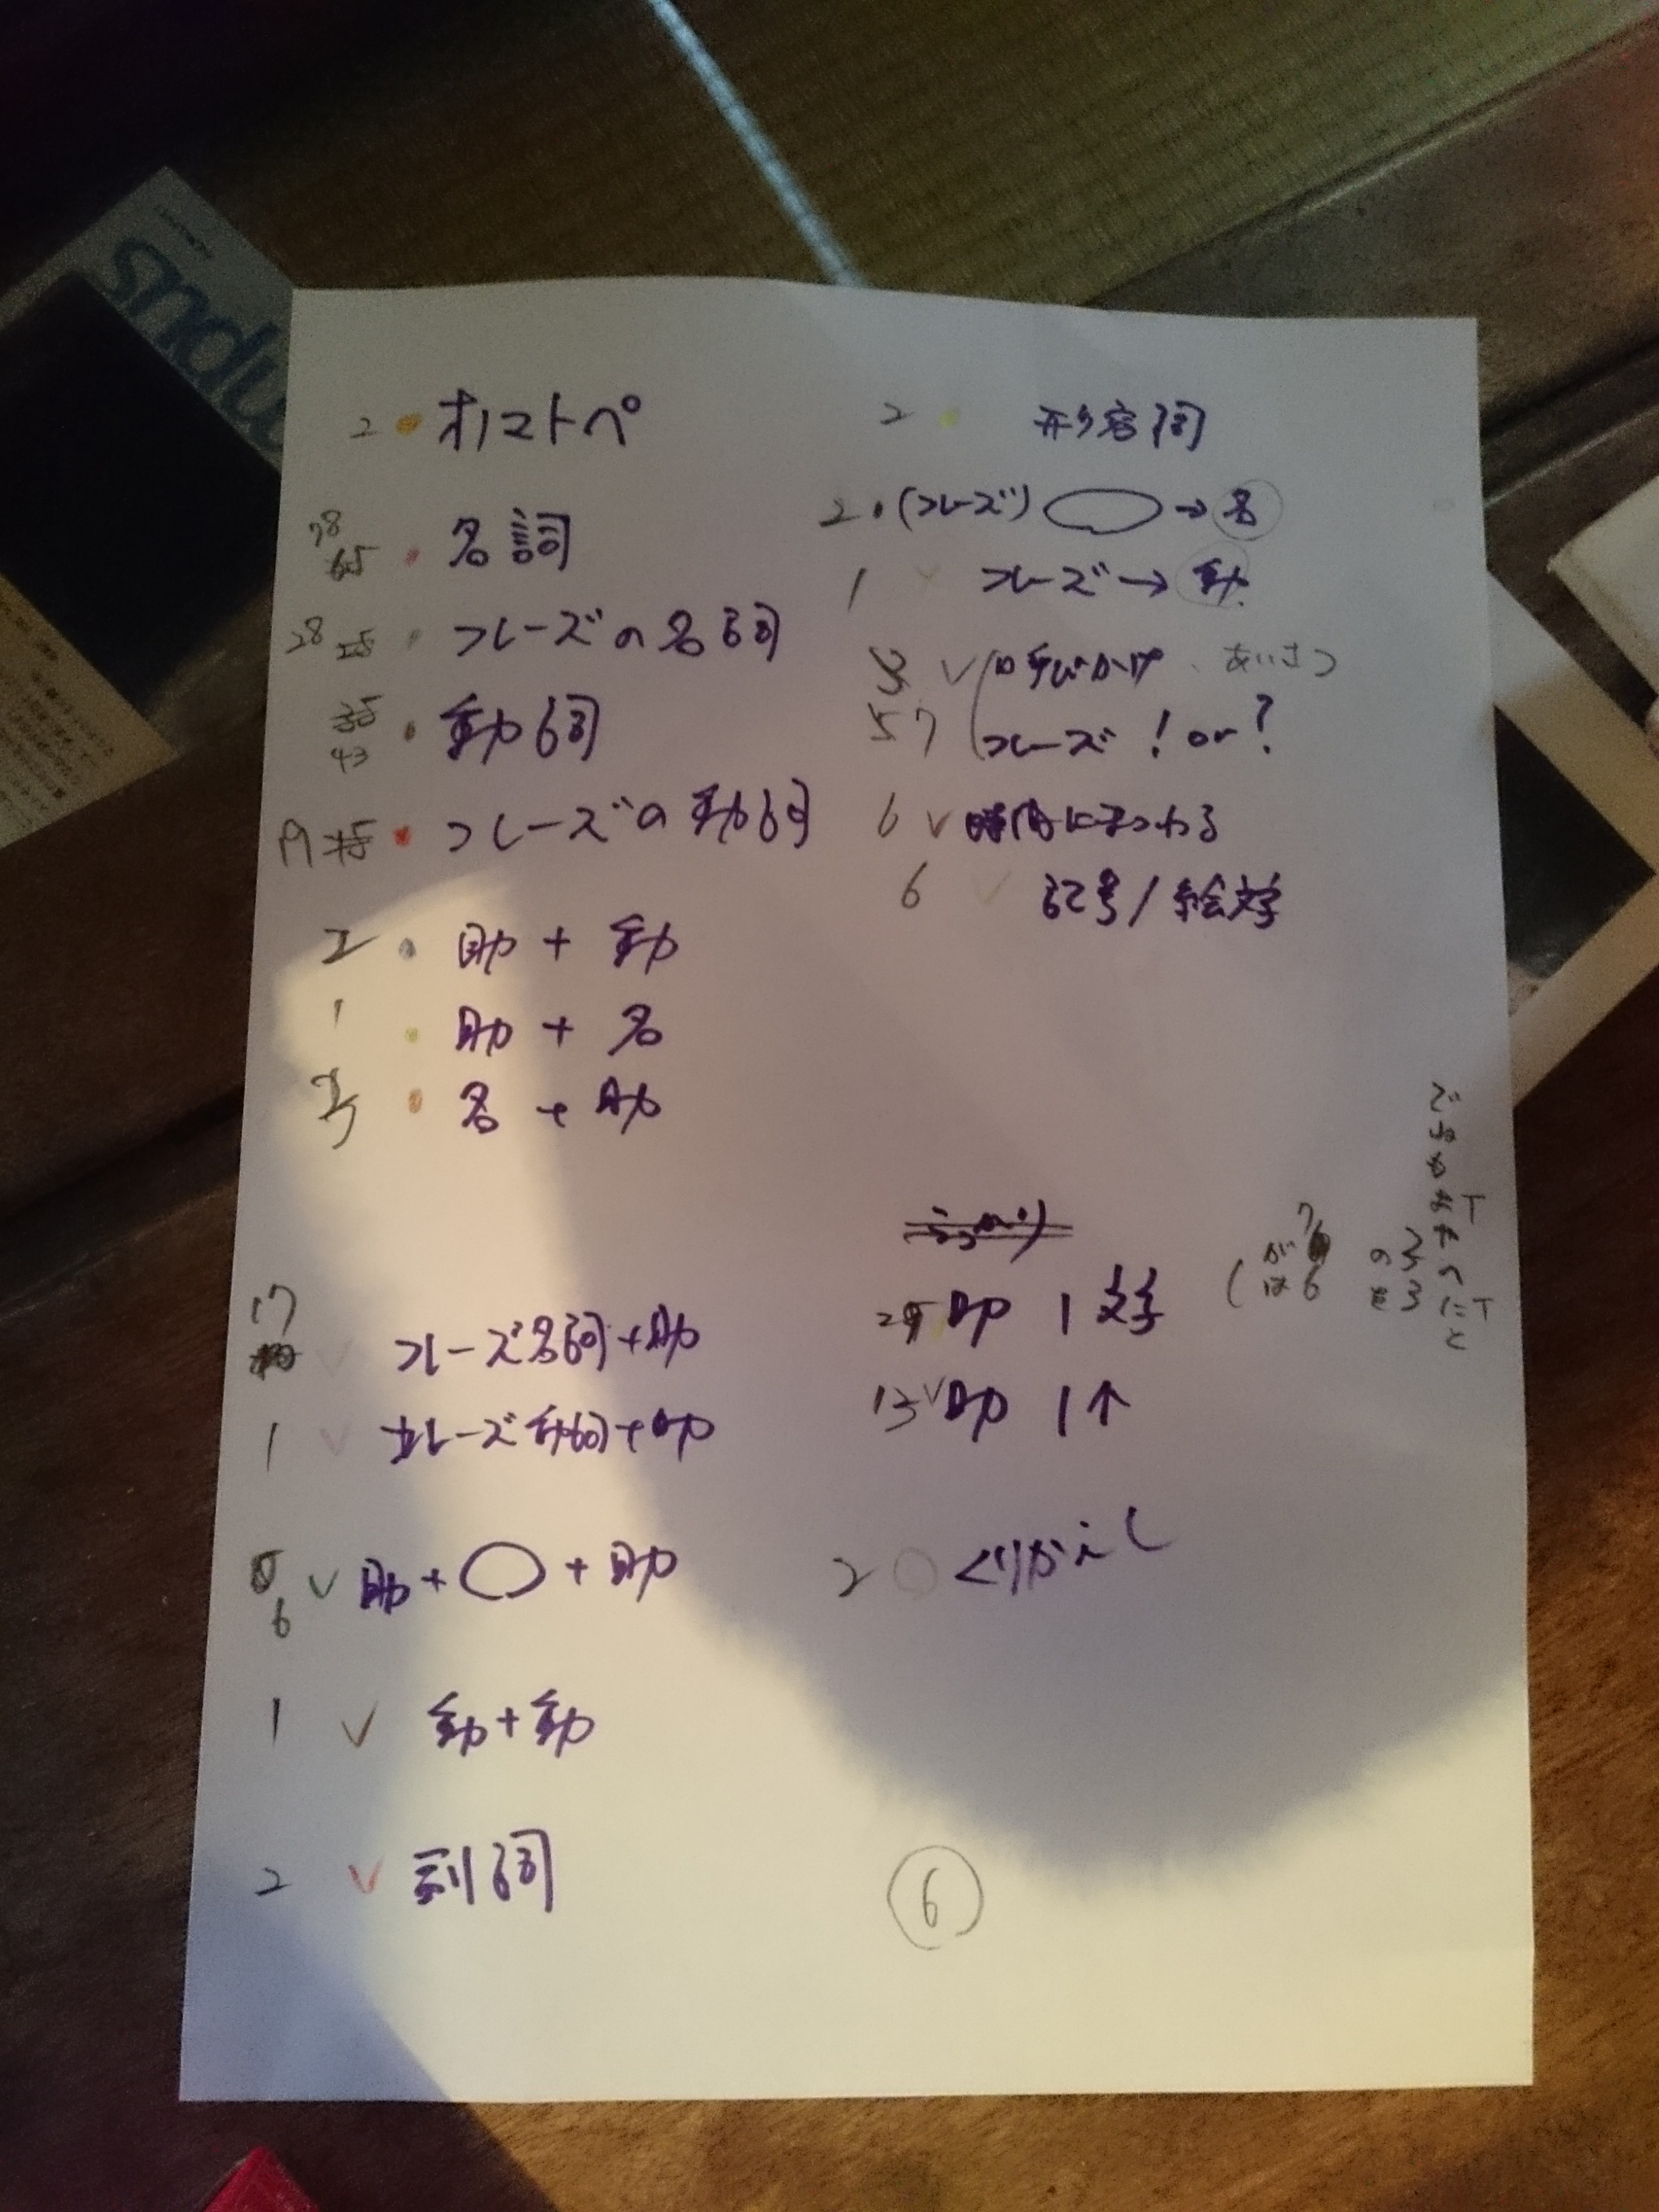 2 オノマトペ
78 65 名詞
28 25 フレーズの名詞
35 43 動詞
19 15 フレーズの動詞
2 助 + 動
1 助 + 名
名 + 助
17 フレーズ名詞+助
1 フレーズ動詞+助
6 助 + ◯ + 助
1 動 + 動
2 副詞
2 形容詞
2 (フレーズ) ◯ → 名
1 フレーズ → 動
呼びかけ、あいさつ
57 フレーズ ! or ?
6 時間にまつわる
6 記号/絵文字
助 1文字
(が7 は6 の3 を3
13 助 1↑
2 くりかえし
6